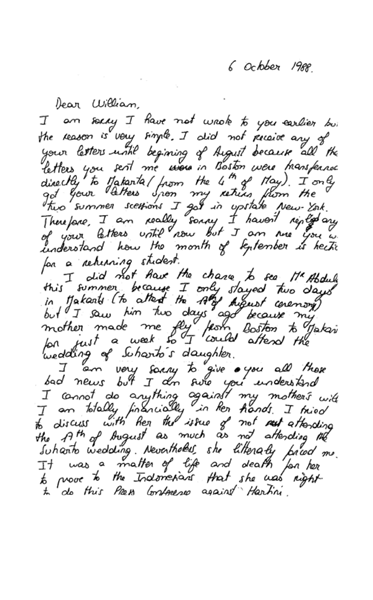 6 October 1988.
Dear William,
I am sorry I have not wrote to you earlier bu
the reason is very simple. I did not receive any of
your letters until begining of August because all the
letters you sent me were in Boston were transferred
directly to Jakarta (from the 4th of May). I only
got your letters upon my return from the
two summer sessions I got in upstate New-York.
Therefore, I am really sorry I haven't replied any
of your letters until now but I am sure you w
understand how the month of September is hectic
for a returning student.
I did not have the chance to see Mr Abdul
this summer because I only stayed two days
in Jakarta (to attend the 17th of August ceremony)
but I saw him two days ago because my
mother made me fly from Boston to Jakar
for just a week so I could attend the
wedding of Suharto's daughter.
I am very sorry to give you all those
bad news but I am sure you understand
I cannot do anything against my mother's will
I am totally financially in her hands. I tried
to discuss with her the issue of not attending
the 17th of August as much as not attending the
Suharto wedding. Nevertheless, she litteraly forced me.
It was a matter of life and death for her
to prove to the Indonesians that she was right
to do this Press Conference against Hartini.